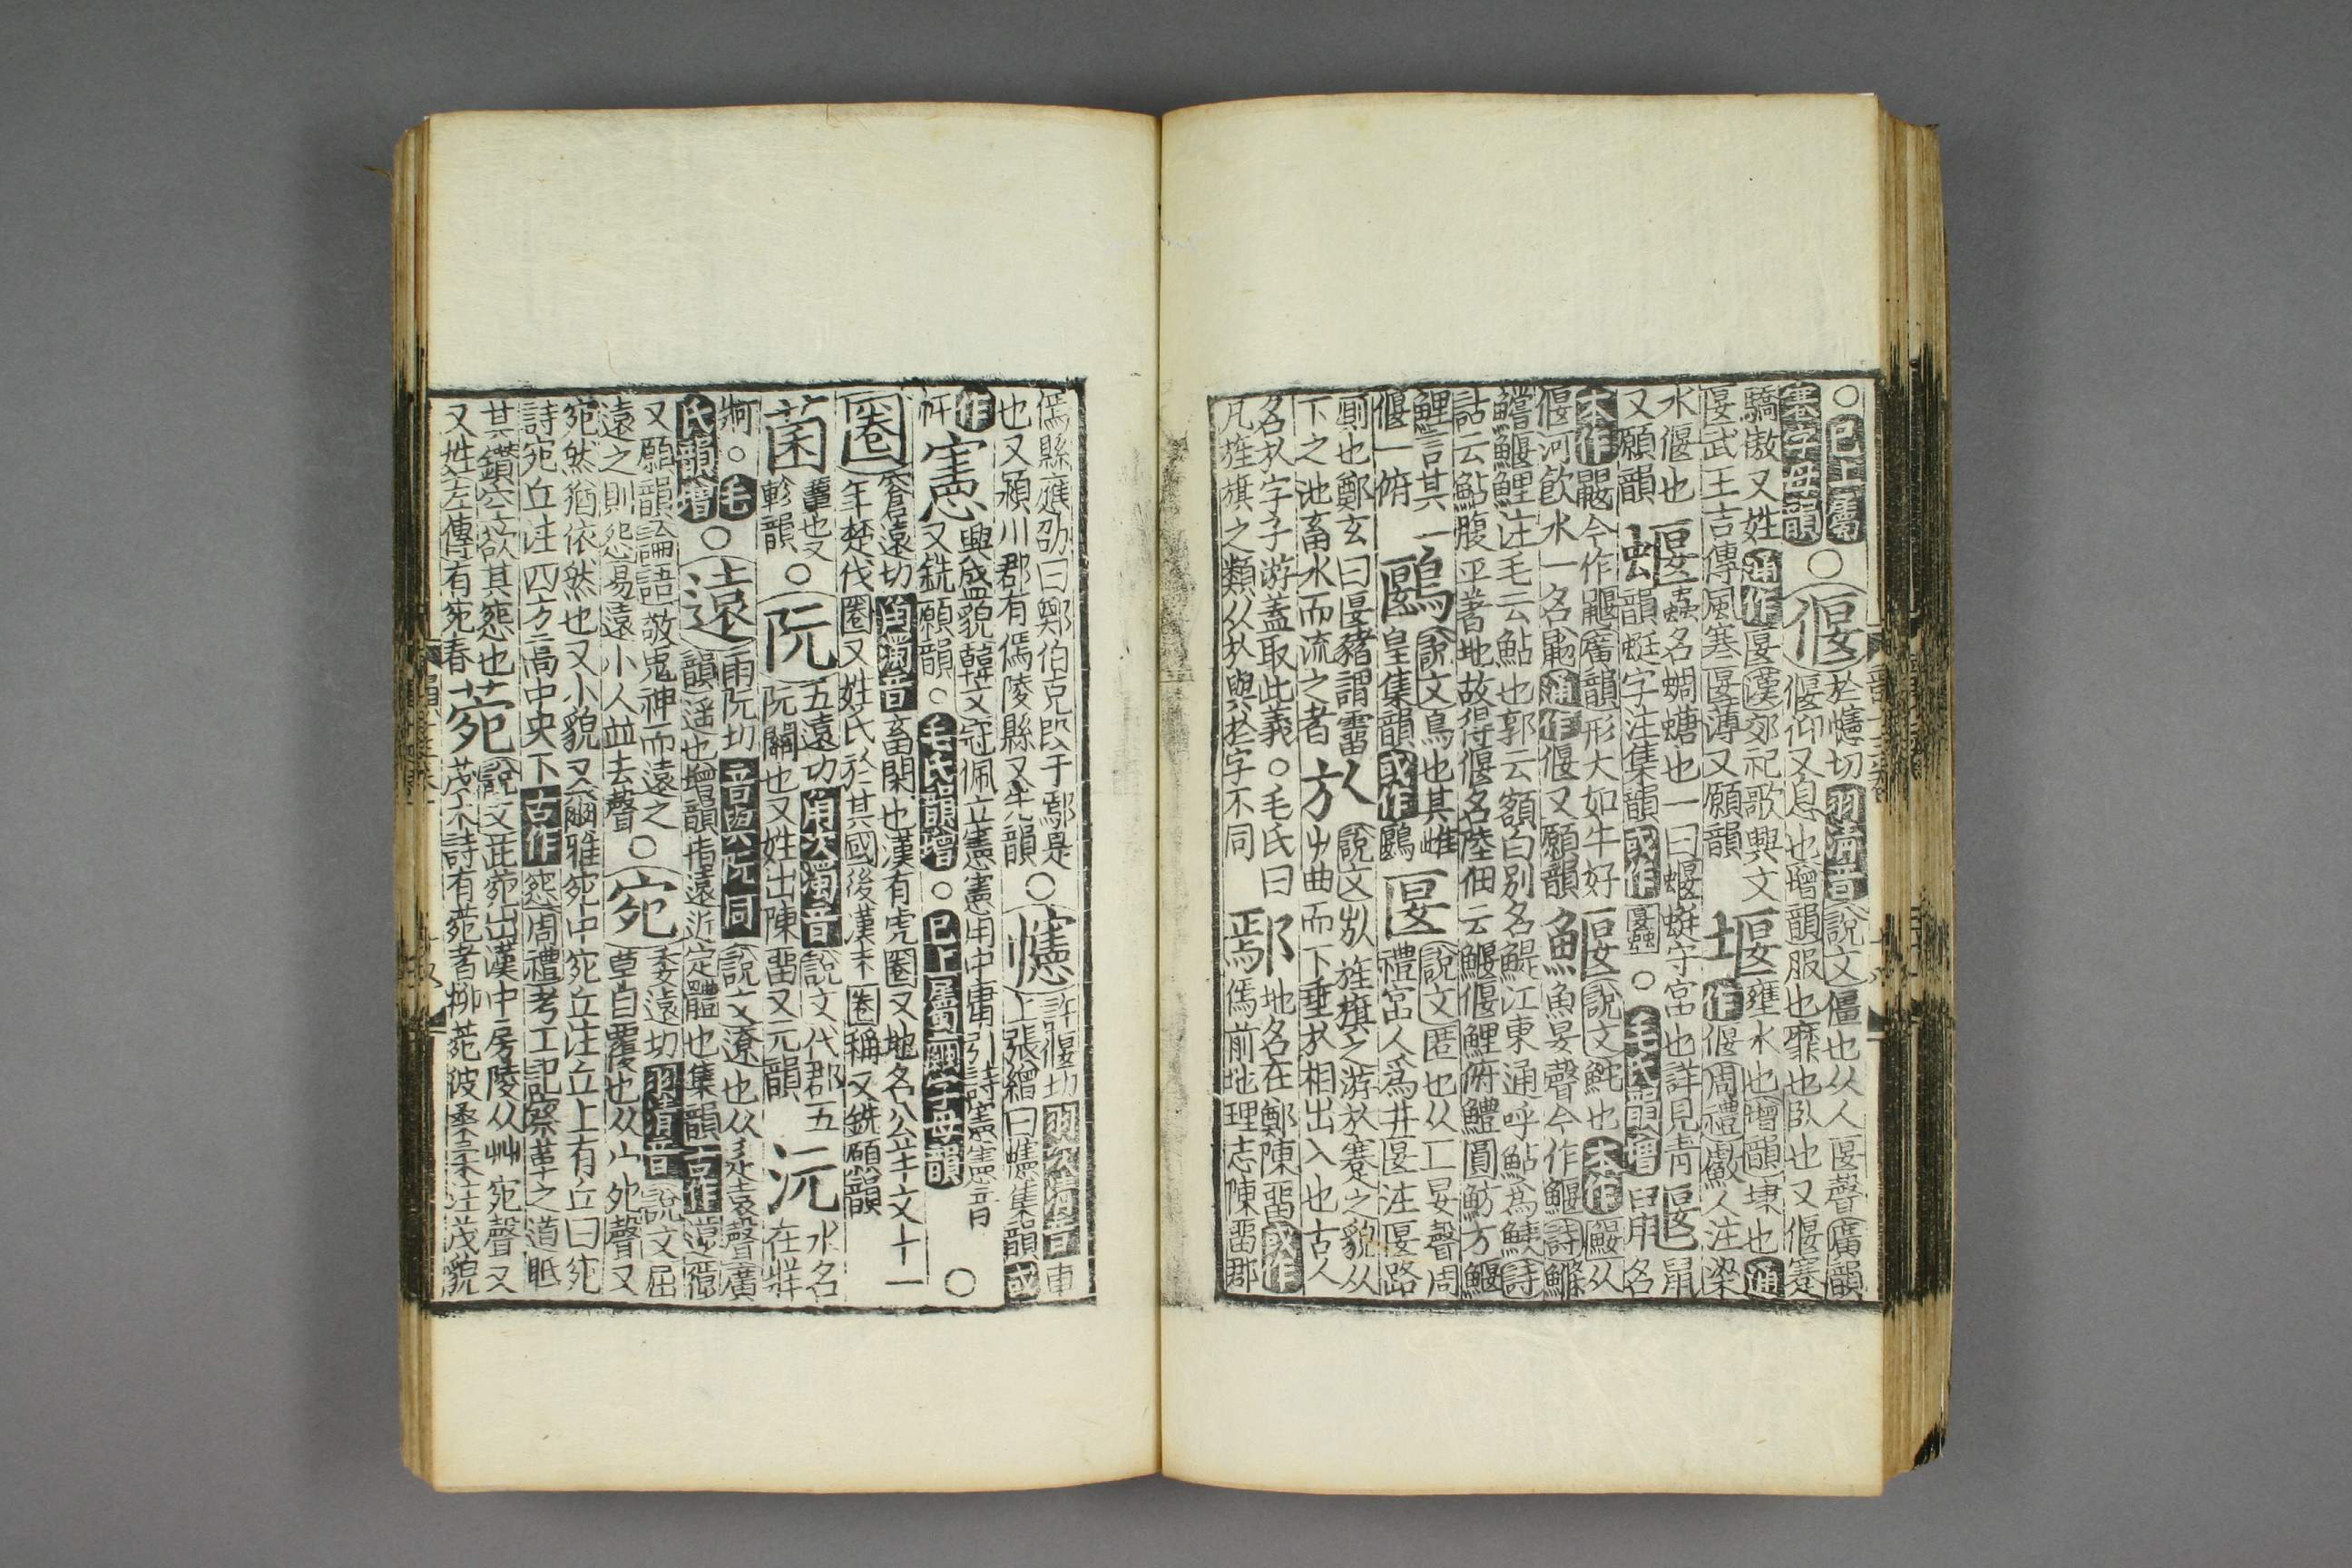 ○已上屬
蹇字母韻○偃於幰切羽清音說文僵也从人匽聲廣韻
偃仰又息也增韻服也靡也臥也又偃蹇
驕傲又姓通作匽漢郊祀歌興文
匽武王吉傳風寒匽薄又願韻堰壅水也增韻埭也通
作偃周禮𤅊人注梁
水偃也
又願韻蝘蟲名蜩螗也一曰蝘蜓守宮也詳見青
韻蜓字注集韻或作𧔥○毛氏韻增鼴鼠
曰用名
本作鼹今作鼴廣韻形大如牛好
偃河飲水一名鼢通作偃又願韻鰋說文鮀也本作鰋从
魚晏聲今作鰋詩鰷
鱨鰋鯉注毛云鮎也郭云額白別名鯷江東通呼鮎為鮧詩
詁云鮎腹平著地故得偃名陸佃云鰋偃鯉俯鱧圓魴方鰋
鯉言其一
偃一俯鶠說文鳥也其雌
皇集韻或作鷗匽說文匿也从匚妟聲周
禮宮人為井匽注匽路
廁也鄭玄曰匽豬謂霤
下之池畜水而流之者㫃說文㫃旌旗之游㫃蹇之貌从
屮曲而下垂㫃相出入也古人
名㫃字子游蓋取此義○毛氏曰
凡旌旗之類从㫃與於字不同鄢地名在鄭陳畱或作
傿前地理志陳畱郡
傿縣應劭曰鄭伯克段于鄢是
也又潁川郡有傿陵縣又先韻○幰許偃切羽次清音車
上張繒曰幰集韻或
作
㡉憲興盛貌韓文冠佩立憲憲用中庸引詩憲憲音
又銑願韻○毛氏韻增○已上屬𦆲字母韻○
圈窘遠切角濁音畜閑也漢有虎圈又地名公羊文十一
年楚伐圈又姓氏於其國後漢末圈稱又銑願韻
菌蕈也又
軫韻○阮五遠切角次濁音說文代郡五
阮關也又姓出陳畱又元韻沅水名
在牂
牁○毛
氏韻增○遠雨阮切音與阮同說文遼也从辵袁聲廣
韻遥也增韻指遠近定體也集韻古作𨖸
又願韻論語敬鬼神而遠之
遠之則怨易遠小人並去聲○宛委遠切羽清音說文屈
草自覆也从宀夗聲又
宛然猶依然也又小貌又爾雅宛中宛丘注丘上有丘曰宛
詩宛丘注四方高中央下古作惌周禮考工記察革之道眡
其鑽空欲其惌也
又姓左傳有宛春菀說文茈菀出漢中房陵从艸宛聲又
茂木詩有菀者柳菀彼桑柔注茂貌